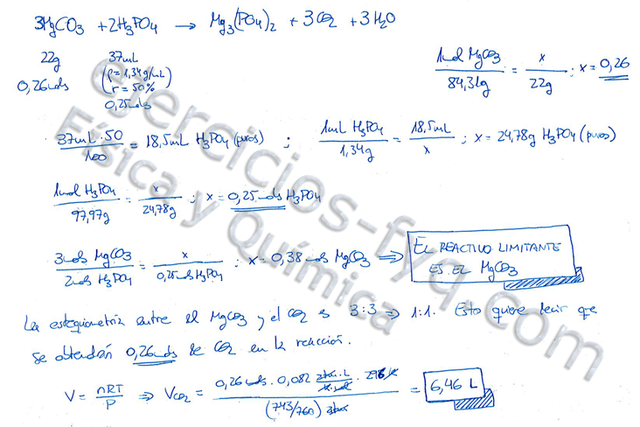 3MgCO3 + 2H3PO4 → Mg3(PO4)2 + 3CO2 + 3H2O
22g 37mL
0,26mols (ρ=1,34g/mL)
(r=50%)
0,25mols
1mol MgCO3 / 84,31g = x / 22g ; x = 0,26
37mL · 50 / 100 = 18,5mL H3PO4 (puros) ; 1mL H3PO4 / 1,34g = 18,5mL / x ; x = 24,78g H3PO4 (puros)
1mol H3PO4 / 97,97g = x / 24,78g ; x = 0,25 mols H3PO4
3mols MgCO3 / 2mols H3PO4 = x / 0,25mols H3PO4 ; x = 0,38 mols MgCO3 ⇒ EL REACTIVO LIMITANTE
ES EL MgCO3
La estequiometría entre el MgCO3 y el CO2 es 3:3 ⇒ 1:1. Esto quiere decir que
se obtendrán 0,26mols de CO2 en la reacción.
V = nRT / P ⇒ VCO2 = 0,26 mols · 0,082 atm·L / K·mol · 296 K / (743/760) atm = 6,46 L
ejercicios-fyq.com
Física y Química